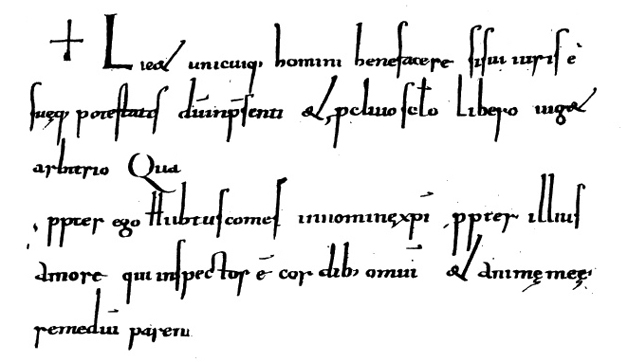 + Lic& unicuiq; homini benefacere si sui iuris ē
suęq; potestatis dū in p̄senti & pcliuo scło Libero uig&
arbitrio Qua
ppter ego Hubtus comes in nomine xp̄i ppter illius
amore qui inspector ē cordib; omniū & animę meę
remediū